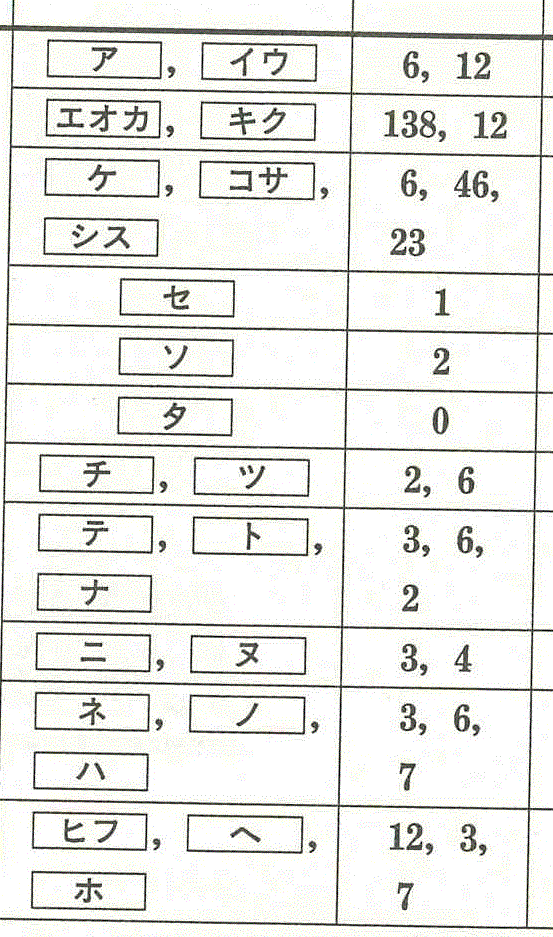 ア, イウ 6, 12
エオカ, キク 138, 12
ケ, コサ, 6, 46,
シス 23
セ 1
ソ 2
タ 0
チ, ツ 2, 6
テ, ト, 3, 6,
ナ 2
ニ, ヌ 3, 4
ネ, ノ, 3, 6,
ハ 7
ヒフ, ヘ, 12, 3,
ホ 7